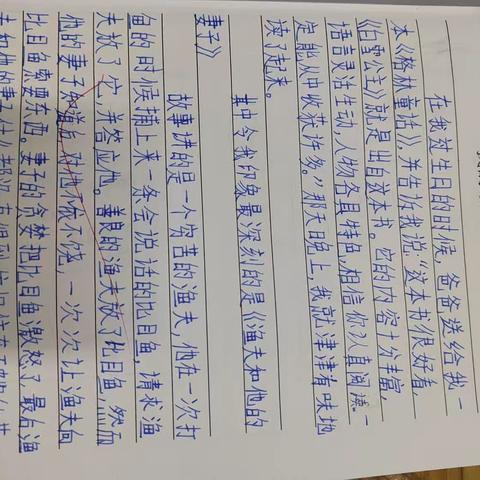 在我过生日的时候，爸爸送给我一
本《格林童话》，并告诉我说：“这本书很好看，
《白雪公主》就是出自这本书。它的内容十分丰富，
语言灵活生动，人物各具特色，相信你认真阅读，一
定能从中收获许多。”那天晚上，我就津津有味地
读了起来。
其中令我印象最深刻的是《渔夫和他的
妻子》
故事讲的是一个穷苦的渔夫，他在一次打
鱼的时候捕上来一条会说话的比目鱼，请求渔
夫放了它，并答应他。善良的渔夫放了比目鱼，然而
他的妻子知道后，对他不依不饶，一次次让渔夫向
比目鱼索要东西。妻子的贪婪把比目鱼激怒了，最后渔
夫和他的妻子